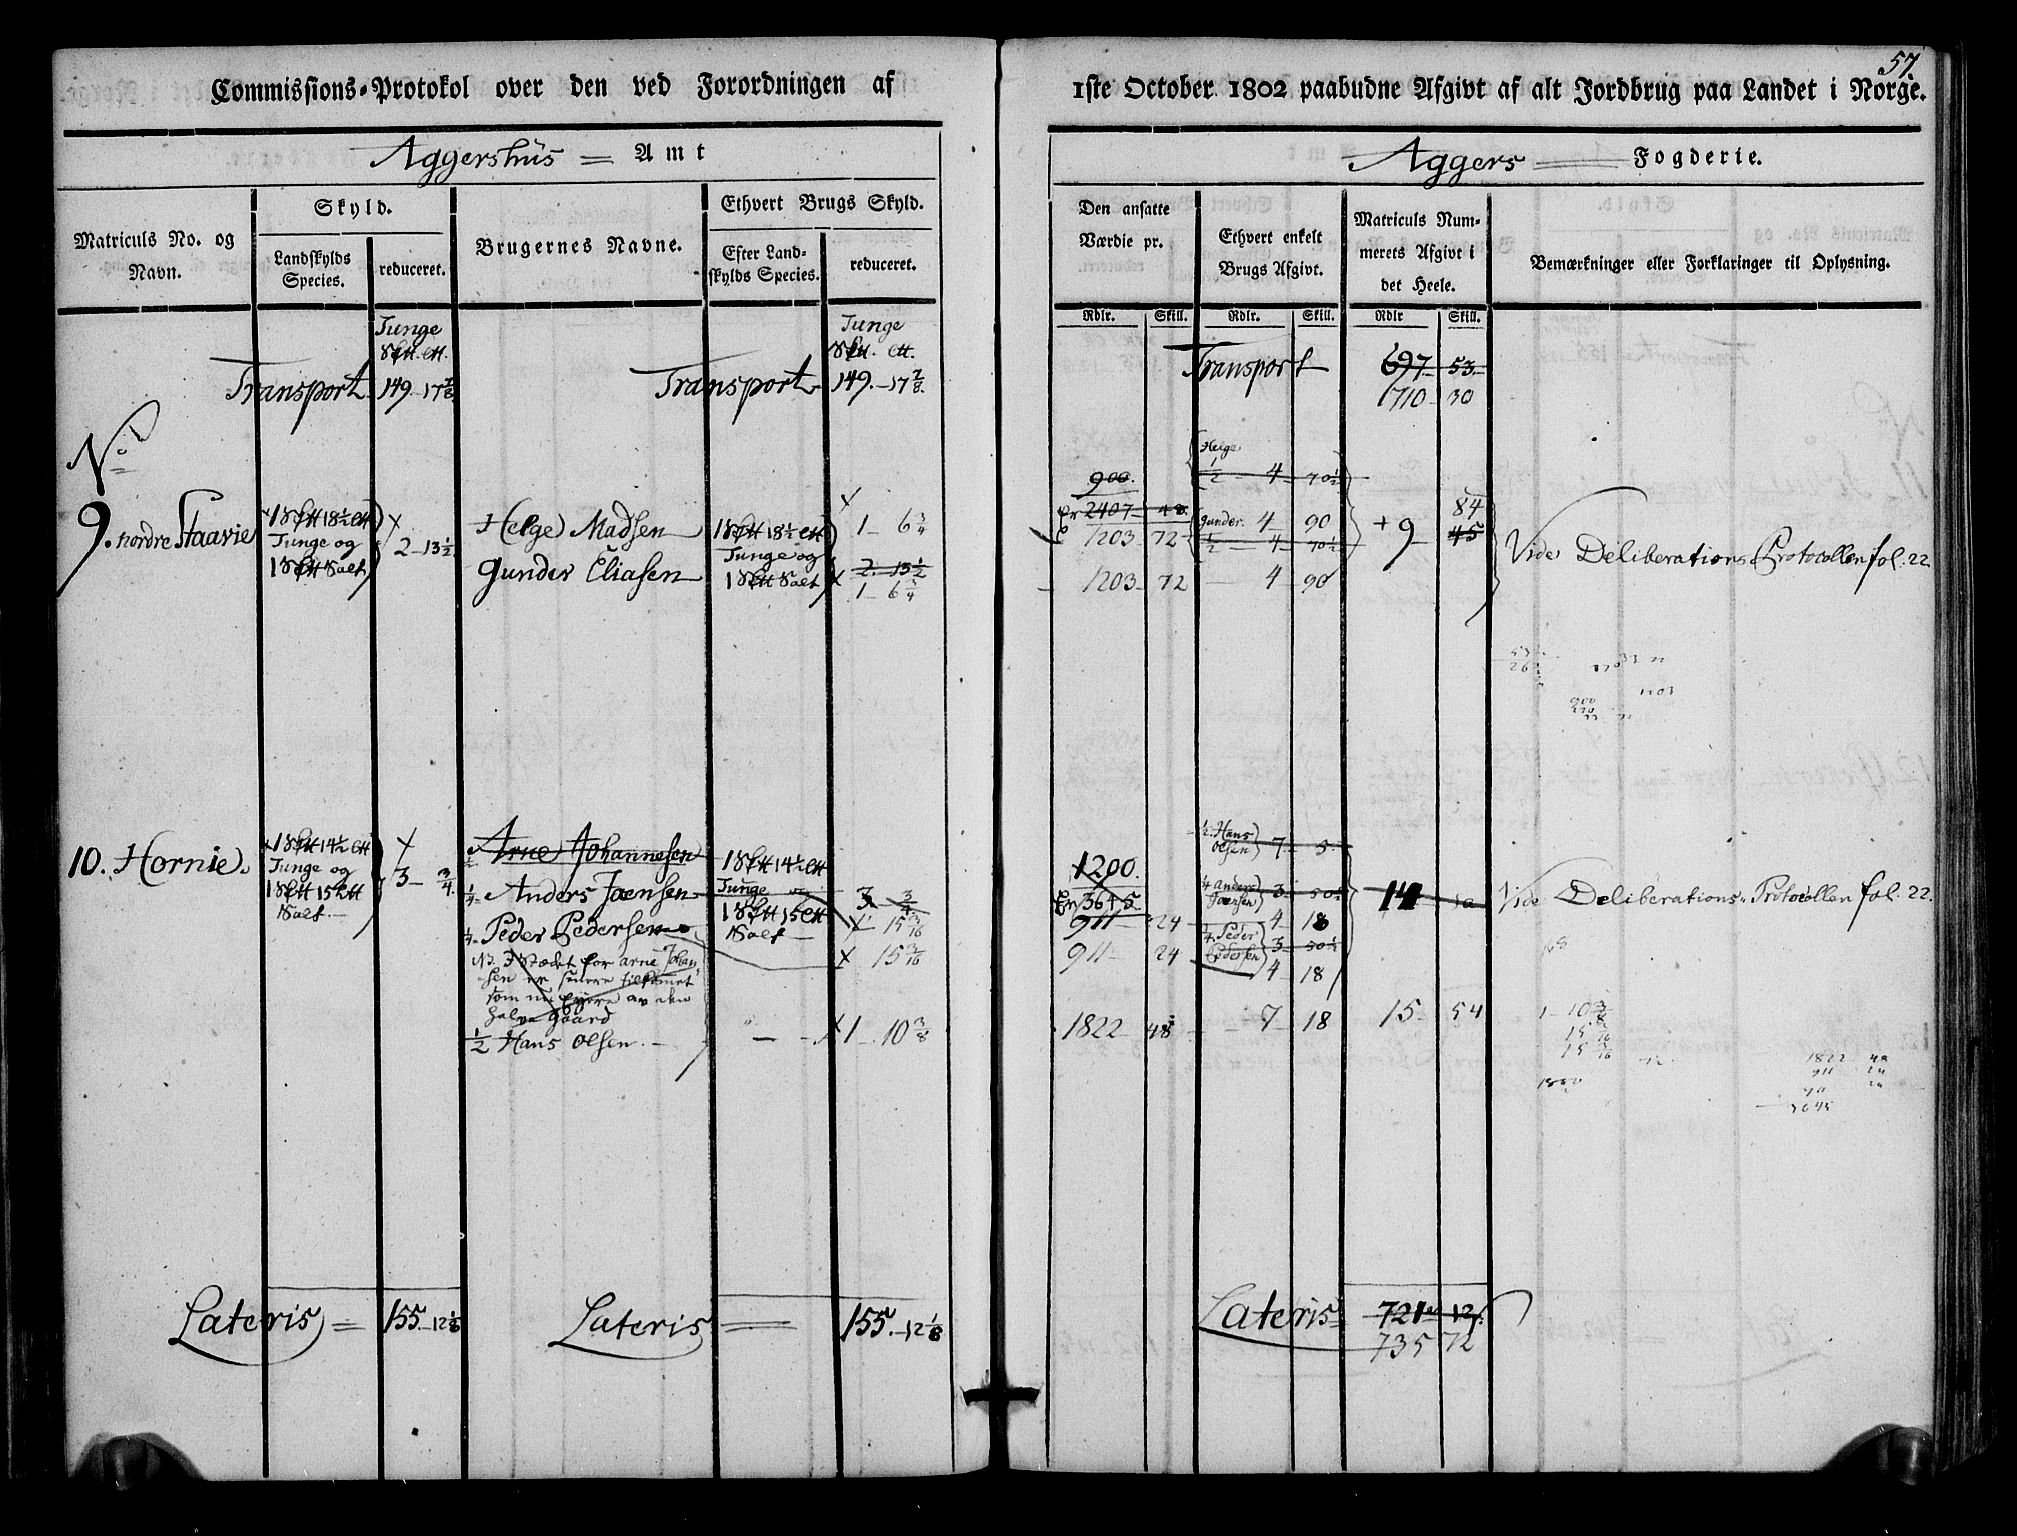 57.
Commissions-Protokol over den ved Forordningen af 1ste October 1802 paabudne Afgivt af alt Jordbrug paa Landet i Norge.
Aggershüs = Amt
Aggers Fogderie.
Matriculs No. og Navn.
Skyld.
Landskylds Species.
reduceret.
Brugernes Navne.
Ethvert Brugs Skyld.
Efter Landskylds Species.
reduceret.
Den ansatte Værdie pr.
Ethvert enkelt Brugs Afgivt.
Matriculs Nummerets Afgivt i det Heele.
Bemærkninger eller Forklaringer til Oplysning.
Rdlr. Skill. Rdlr. Skill. Rdlr Skill.
Tunge
Tunge
Transport 149.-17 7/8
Transport 149.-17 7/8.
Transport 697 53
1710 30
No
9. nordre Staavie
Tunge og
Salt
2-13 1/2
Helge Madsen
Gunder Eliasen
Tunge og
Salt
1- 6 3/4
2. 13 1/2
1- 6 3/4
900.
2407 48
1203 72
1203 72
Helge
1/2 4 70 1/2
gunder. 4 90
1/2 4 70 1/2
4 90
+9 84
45
Vide Deliberations Protocollen fol. 22
10. Hornie.
Tunge og
Salt.
3- 3/4.
1/2 Arne Johannesen
1/4 Anders Joensen
1/4 Peder Pedersen
Tunge og
Salt
3 3/4
15 3/16
15 3/16
NB. I Stædet for arne Johansen er senere tilkomet
som nu Ejere av den
halve Gaard
1/2 Hans Olsen.
1-. 10 3/8
1200.
3645
911 24
911 24
1822 48
1/2. Hans Olsen 7 5
1/4 anders Joensen 3 50 1/2
4 18
1/4 Peder Pedersen 3 50 1/2
4 18
7 18
14
15 54
Vide Deliberations Protocollen fol. 22.
1- 10 3/8
15 3/16
15 3/16
1822 48
911 24
911 24
3645
Lateris = 155.-12 1/8
Lateris = 155.-12 1/8
Lateris 721 12
735 72